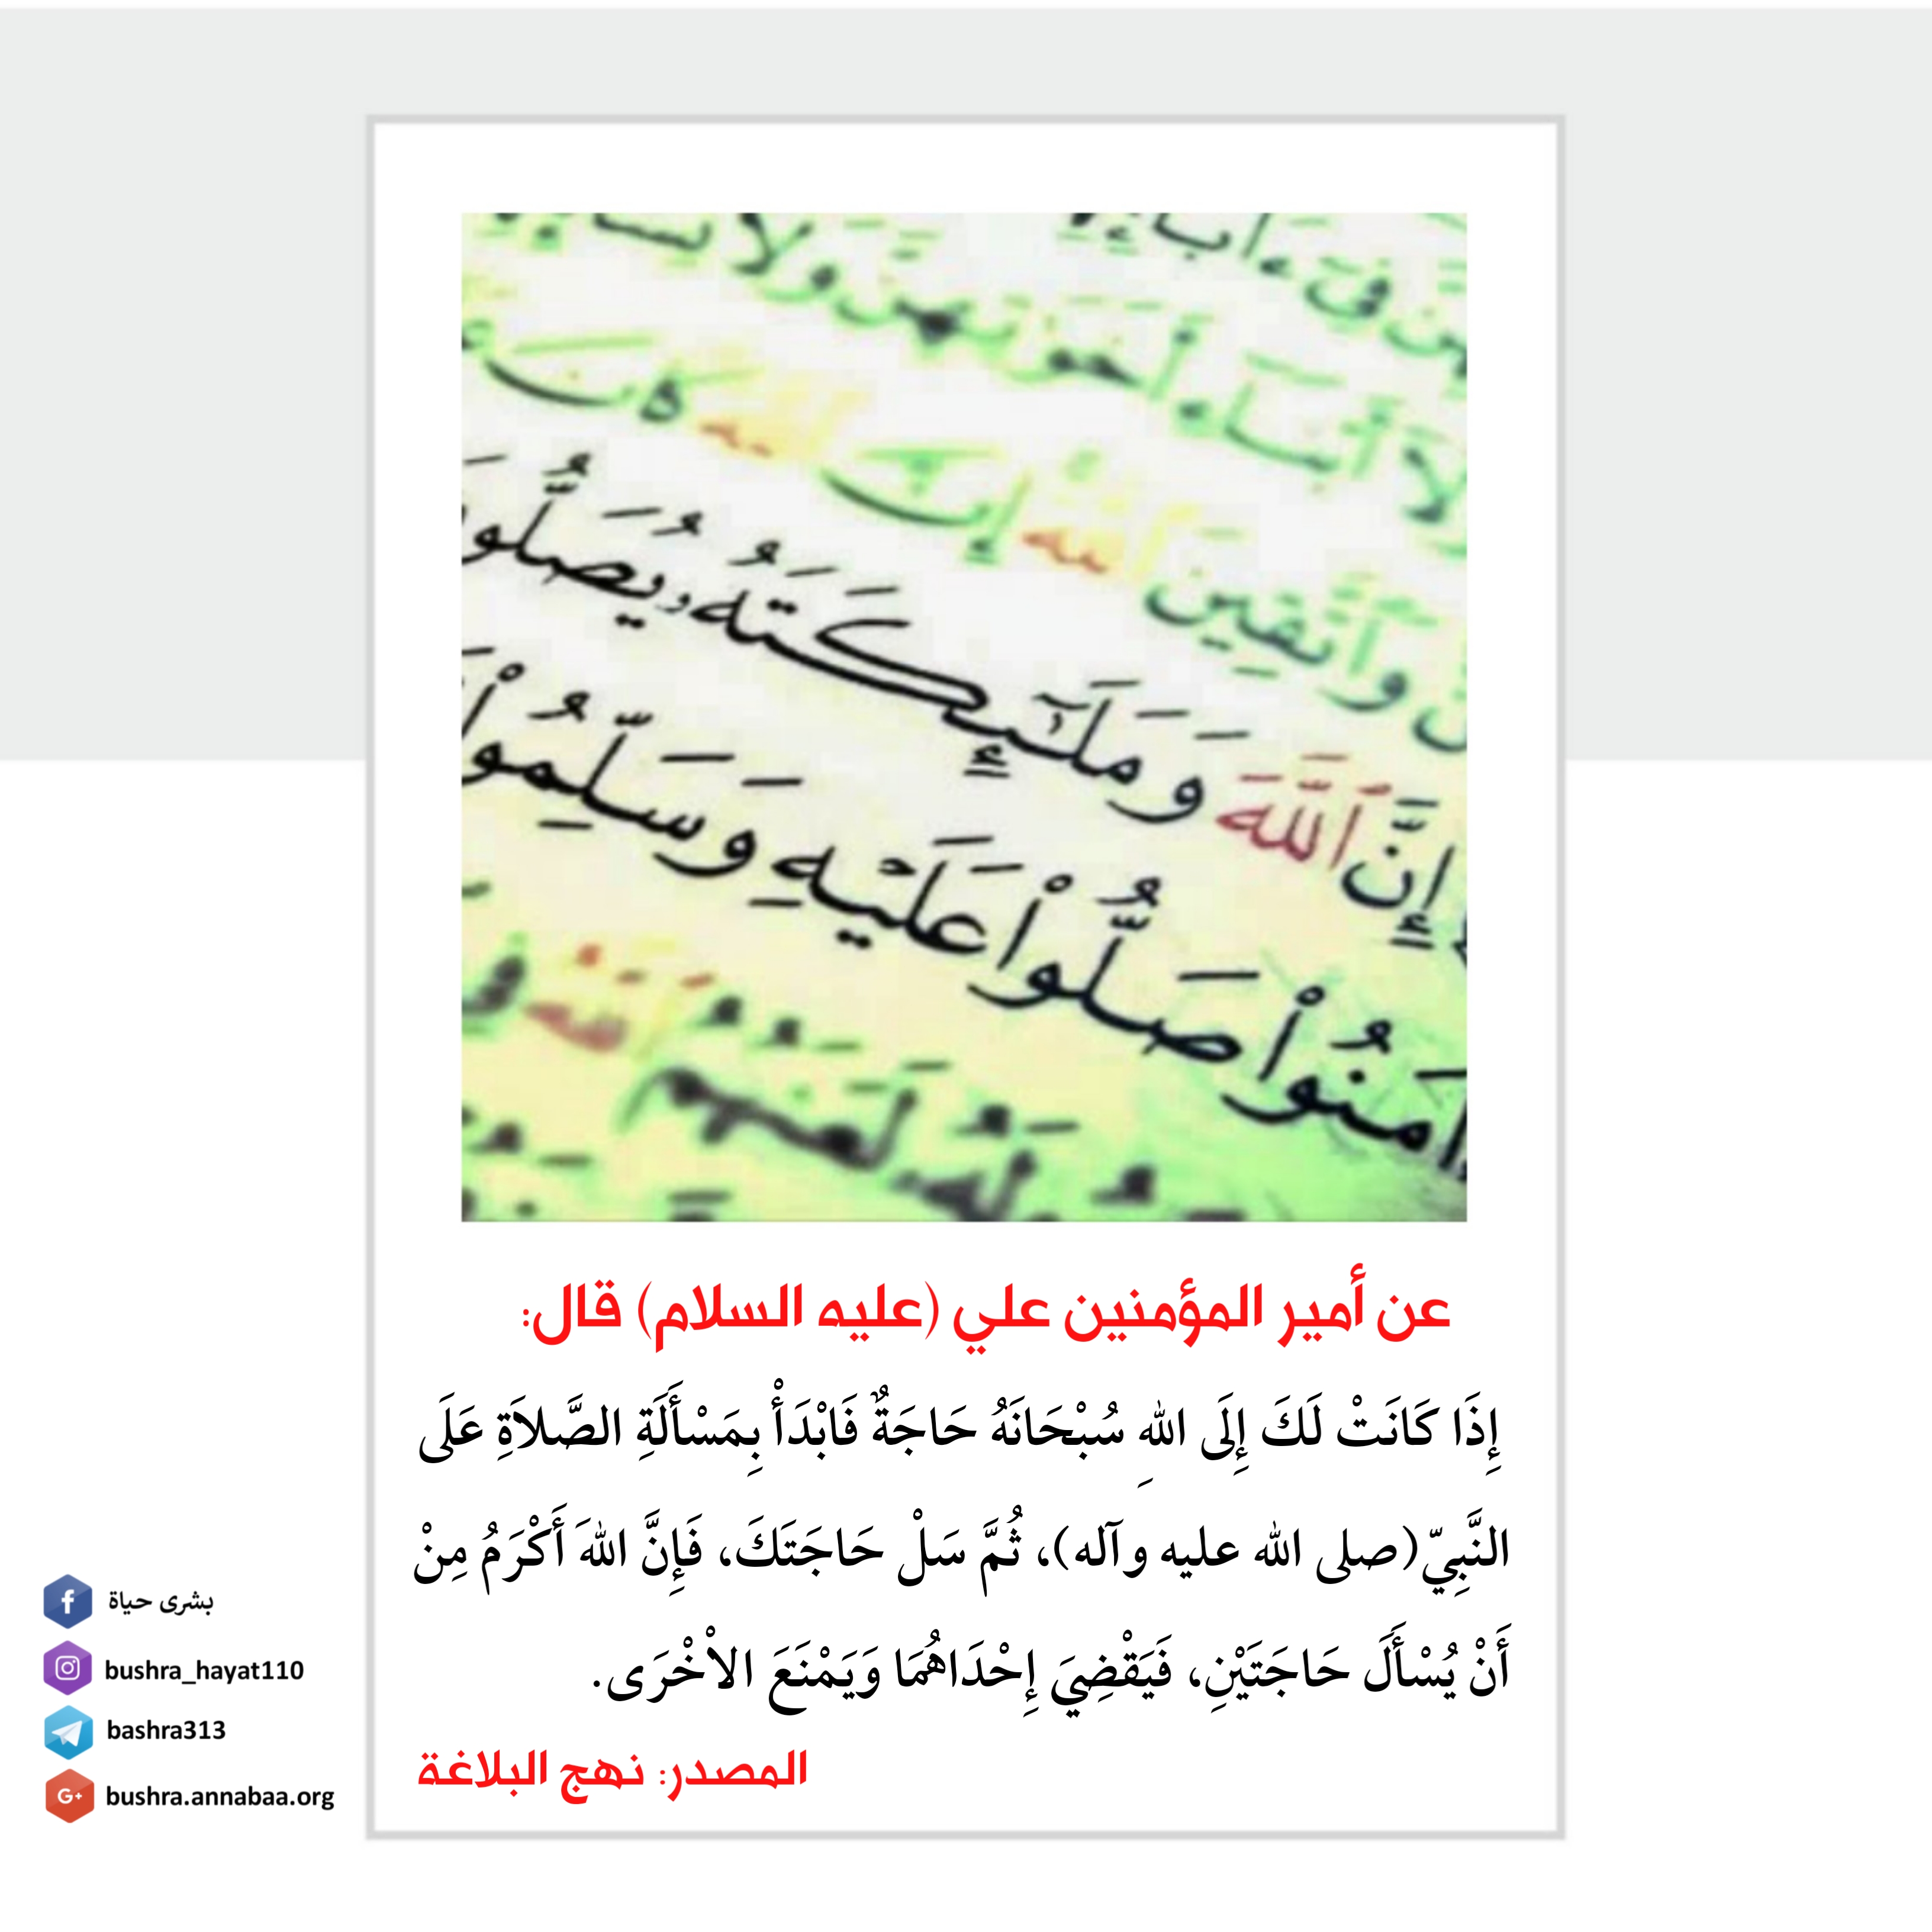 إِنَّ ٱللَّهَ وَمَلَٰٓئِكَتَهُۥ يُصَلُّو
ءَامَنُوا۟ صَلُّوا۟ عَلَيْهِ وَسَلِّمُوا۟
عن أمير المؤمنين علي (عليه السلام) قال:
إِذَا كَانَتْ لَكَ إِلَى اللهِ سُبْحَانَهُ حَاجَةٌ فَابْدَأْ بِمَسْأَلَةِ الصَّلاَةِ عَلَى
النَّبِيّ(صلى الله عليه وآله)، ثُمَّ سَلْ حَاجَتَكَ، فَإِنَّ اللهَ أَكْرَمُ مِنْ
أَنْ يُسْأَلَ حَاجَتَيْنِ، فَيَقْضِيَ إِحْدَاهُمَا وَيَمْنَعَ الاْخْرَى.
المصدر: نهج البلاغة
بشرى حياة
bushra_hayat110
bashra313
bushra.annabaa.org